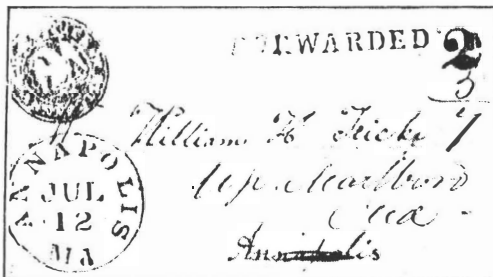 FORWARDED 2
5
William H 7
Up. Marlboro
Annapolis
ANNAPOLIS
JUL
12
Md